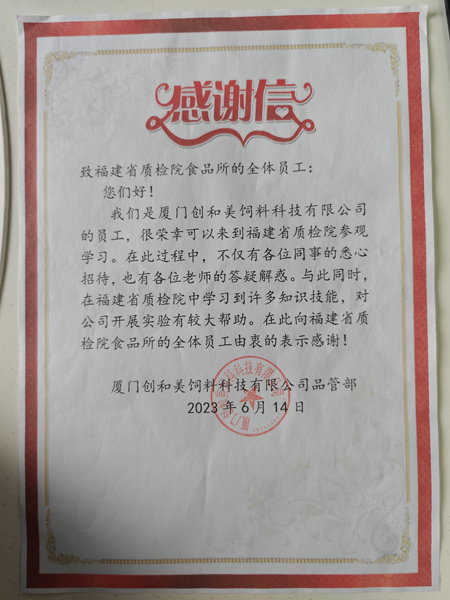 感谢信
致福建省质检院食品所的全体员工：
您们好！
我们是厦门创和美饲料科技有限公司
的员工，很荣幸可以来到福建省质检院参观
学习。在此过程中，不仅有各位同事的悉心
招待，也有各位老师的答疑解惑。与此同时，
在福建省质检院中学习到许多知识技能，对
公司开展实验有较大帮助。在此向福建省质
检院食品所的全体员工由衷的表示感谢！
厦门创和美饲料科技有限公司品管部
2023 年 6 月 14 日